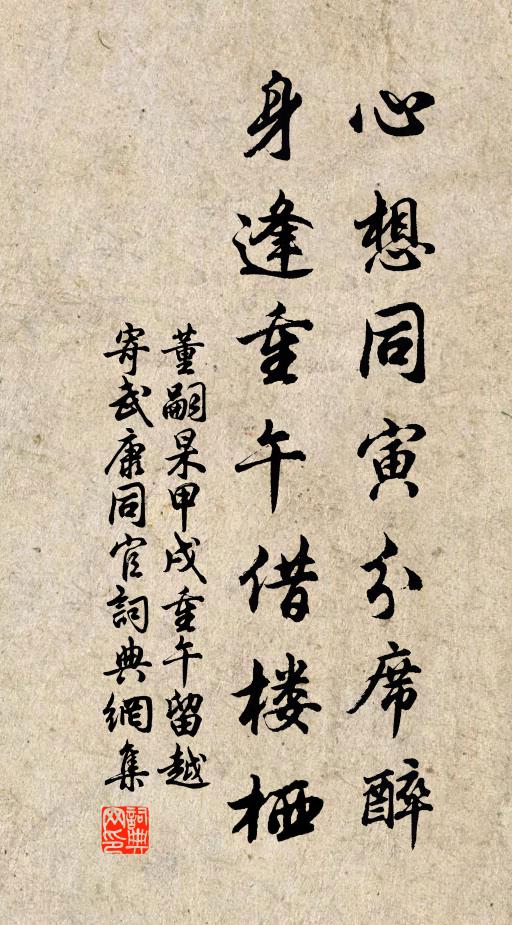 心想同寅分席醉
身逢重午借楼栖
董嗣杲甲戌重午留越
寄武康同官詞典網集
詞典网印